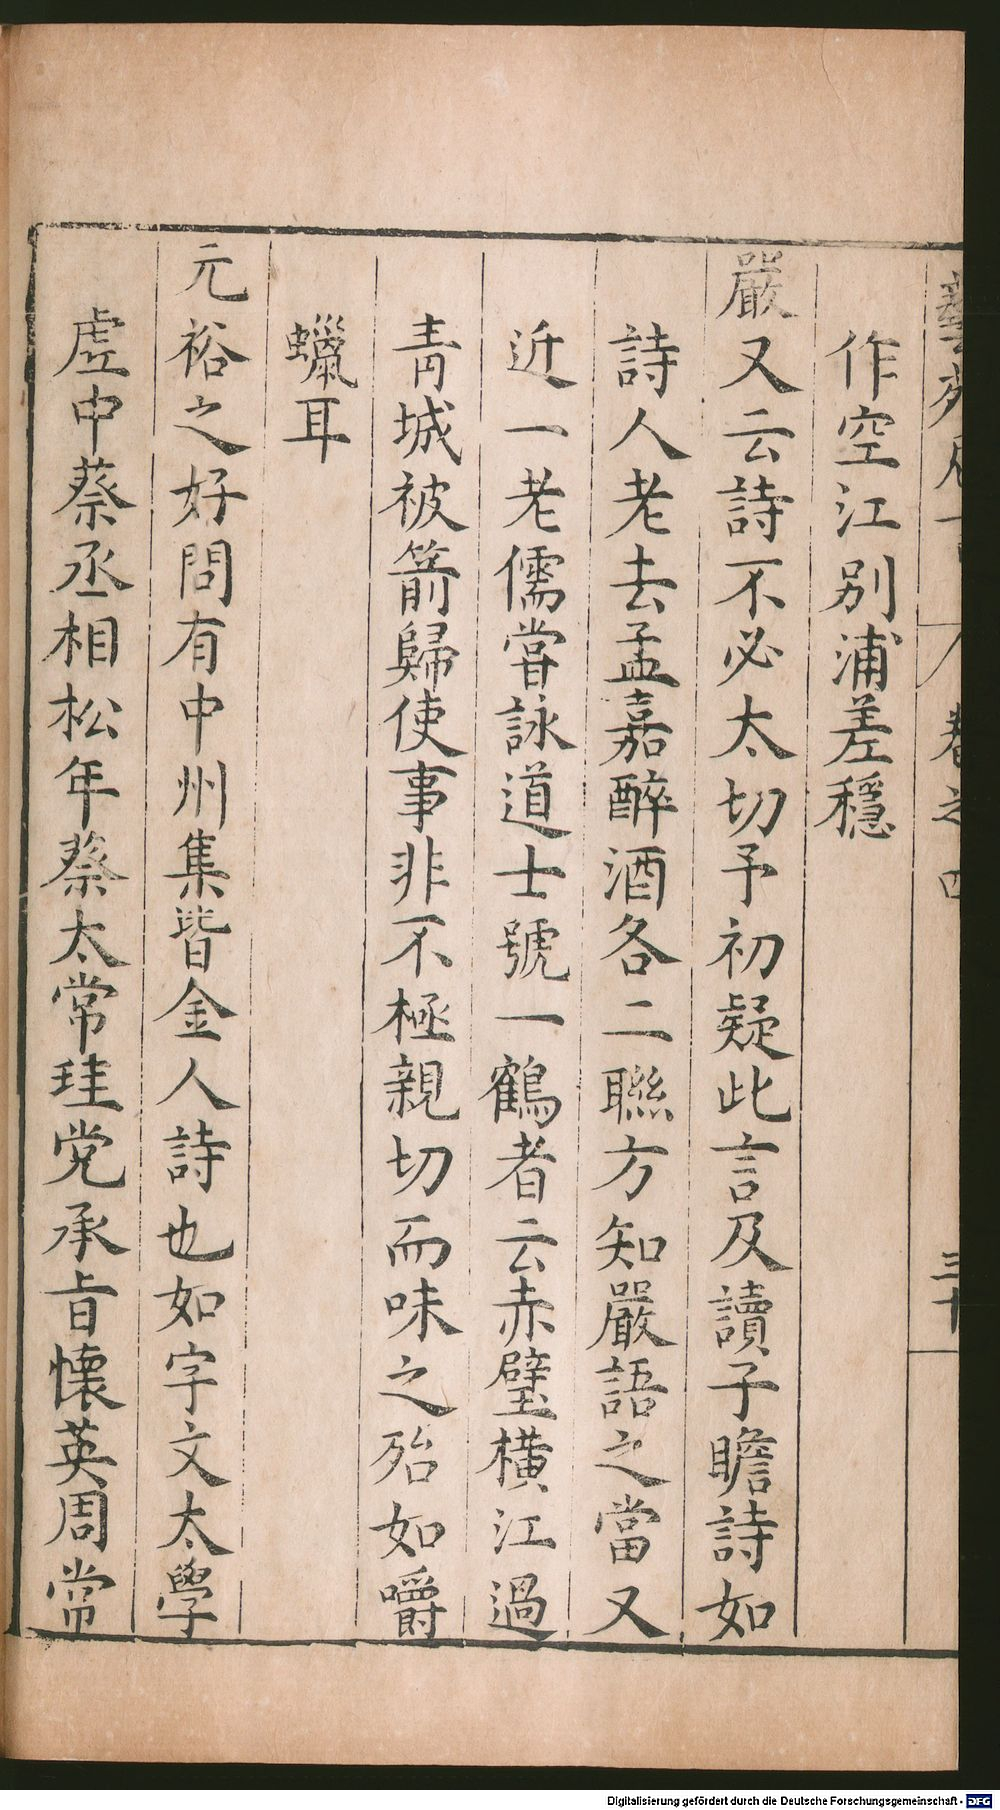 作空江別浦差穩
嚴又云詩不必太切予初疑此言及讀子瞻詩如
詩人老去孟嘉醉酒各二聯方知嚴語之當又
近一老儒嘗詠道士號一鶴者云赤壁橫江過
青城被箭歸使事非不極親切而味之殆如嚼
蠟耳
元裕之好問有中州集皆金人詩也如宇文太學
虛中蔡丞相松年蔡太常珪党承旨懷英周常
卷之四
三十
Digitalisierung gefördert durch die Deutsche Forschungsgemeinschaft - DFG